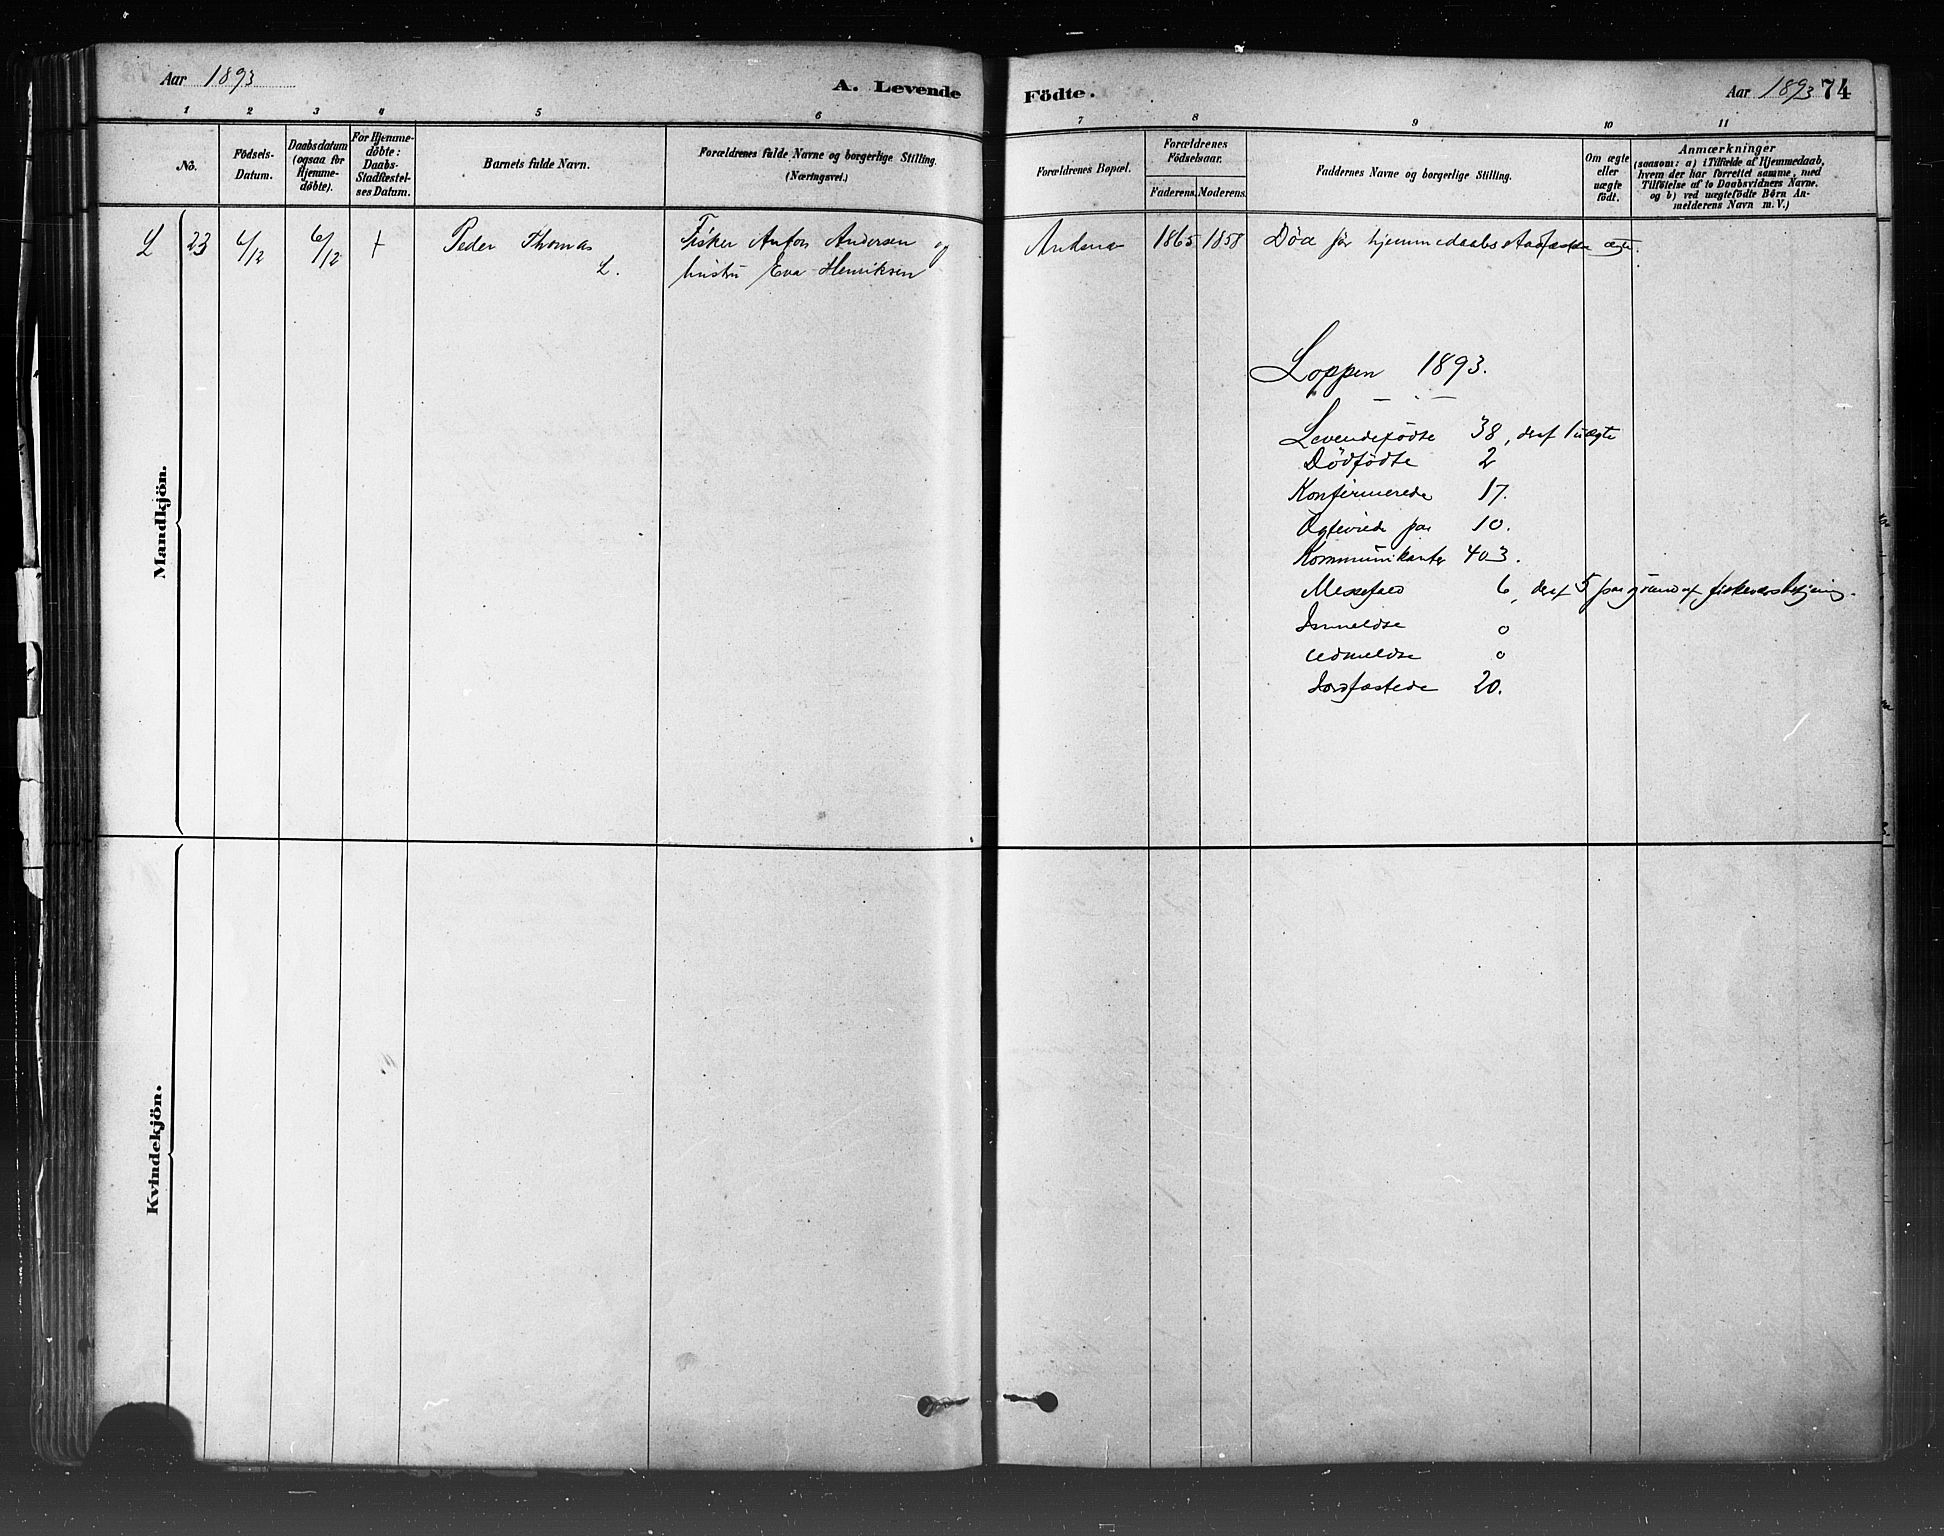 Aar 1893
A. Levende
Födte.
Aar 1893 74
1 2 3 4 5 6
7 8 9 10 11
No.
Födsels-
Datum.
Daabsdatum
(ogsaa for
Hjemme-
døbte).
For Hjemme-
døbte:
Daabs-
Stadfæstel-
ses Datum.
Barnets fulde Navn.
Forældrenes fulde Navne og borgerlige Stilling.
(Næringsvei.)
Forældrenes Bopæl.
Forældrenes
Födselsaar.
Faderens. Moderens.
Faddernes Navne og borgerlige Stilling.
Om ægte
eller
uægte
födt.
Anmærkninger
(saasom: a) i Tilfælde af Hjemmedaab,
hvem der har forrettet samme, med
Tilföielse af to Daabsvidners Navne.
og b) ved uægtefödte Börn An-
melderens Navn m. V.)
L 23 6/12 6/12 + Peder Thomas
L.
Fisker Anton Andersen og
hustru Eva Henriksen
1865 1858 Död før hjemmedaabs stadfæstelse ægte.
Loppen 1893.
Levendefødte 38, deraf 1 uægte
Dödfödte 2
Konfirmerede 17.
Ægteviede par 10.
Kommunikanter 403.
Messefald 6, deraf 5 paa grund af fiskeværsbetjening.
Indmeldte 0
Udmeldte 0
Jordfæstede 20.
Mandkjön.
Kvindekjön.